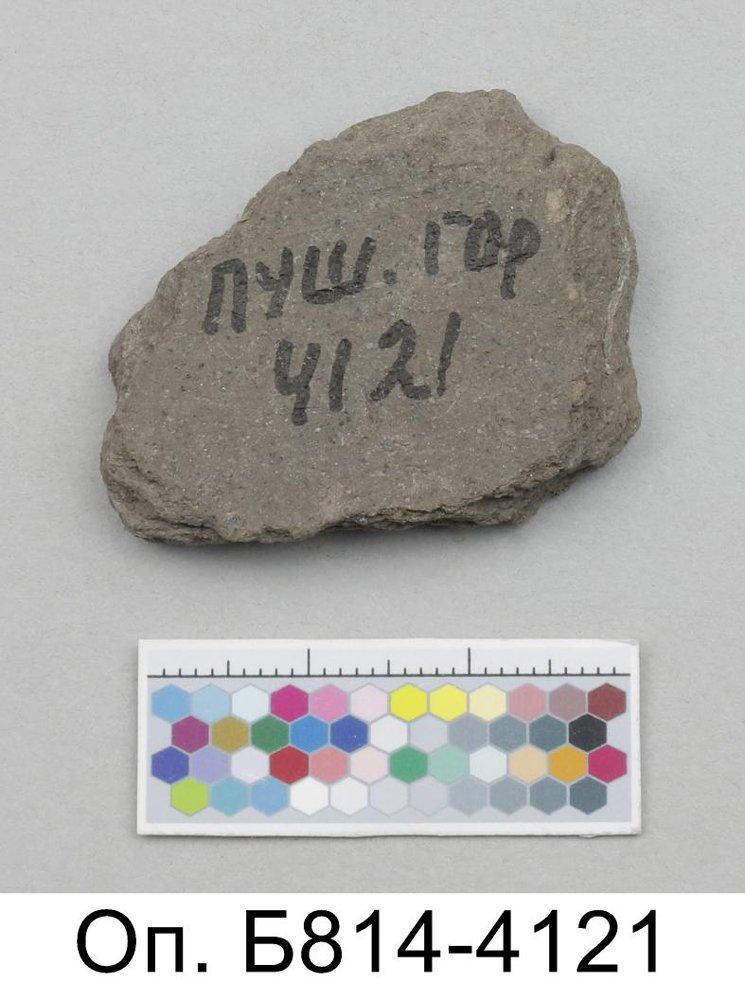 ПУШ. ГОР
4121
Оп. Б814-4121